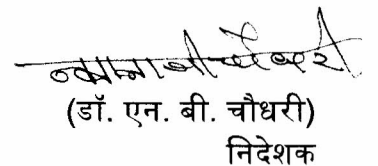 (डॉ. एन. बी. चौधरी)
निदेशक